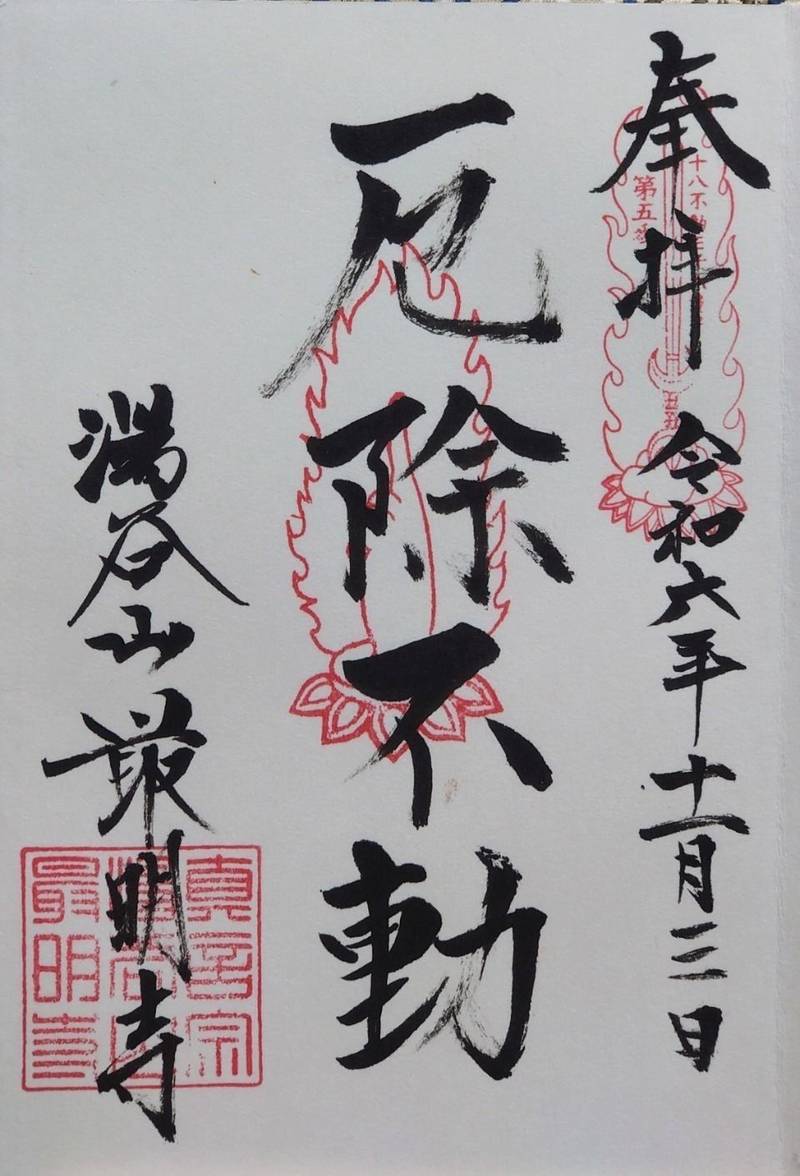 奉拝 令和六年十一月三日
第五
厄除不動
湯谷山 最明寺
真言宗
湯谷山
最明寺